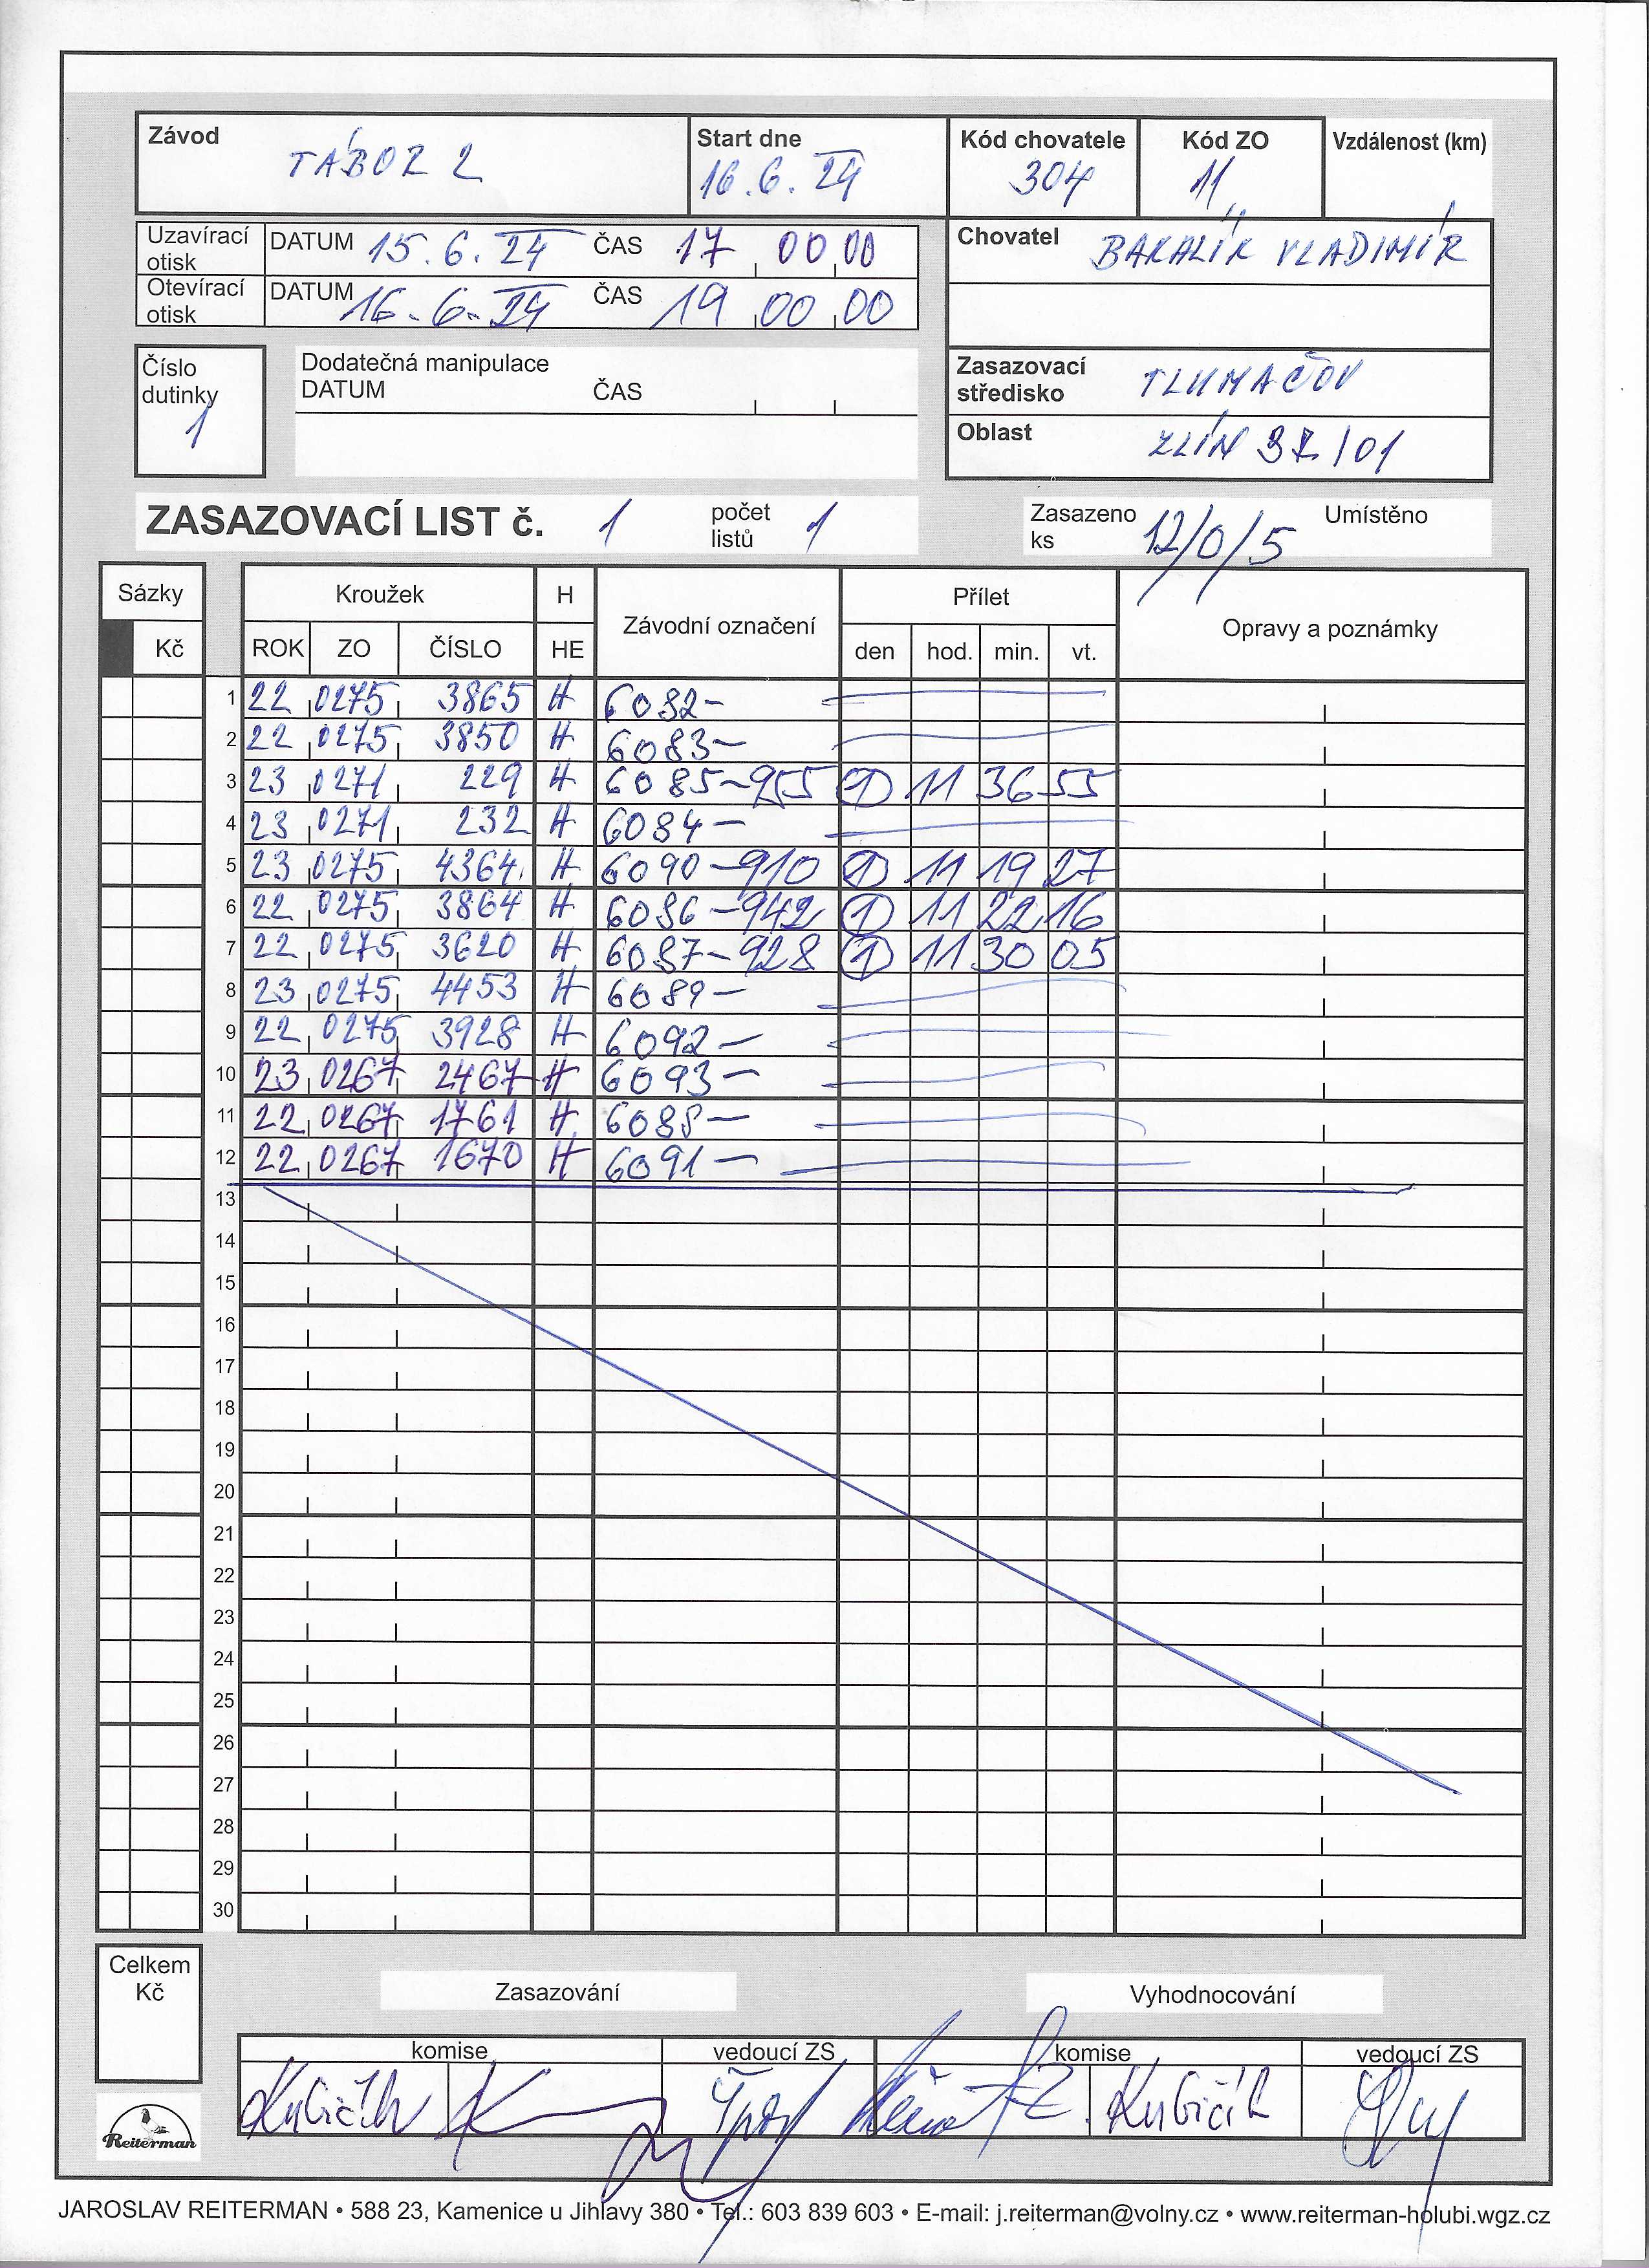 Závod TÁBOR 2 Start dne 16.6.24 Kód chovatele 304 Kód ZO 11 Vzdálenost (km)
Uzavírací otisk DATUM 15.6.24 ČAS 17 00 00
Otevírací otisk DATUM 16.6.24 ČAS 19 00 00
Chovatel VLADIMÍR
Číslo dutinky 1
Dodatečná manipulace
DATUM ČAS
Zasazovací středisko TLUMAČOV
Oblast ZLÍN 37/01
ZASAZOVACÍ LIST č. 1 počet listů 1 Zasazeno ks 12/0/5 Umístěno
Sázky Kroužek H Závodní označení Přílet Opravy a poznámky
Kč ROK ZO ČÍSLO HE den hod. min. vt.
1 22 0275 3865 H 6082-
2 22 0275 3850 H 6083-
3 23 0271 229 H 6085-955 1 11 36 55
4 23 0271 232 H 6084-
5 23 0275 4364 H 6090-910 1 11 19 27
6 22 0275 3864 H 6086-942 1 11 22 16
7 22 0275 3620 H 6087-928 1 11 30 05
8 23 0275 4453 H 6089-
9 22 0275 3928 H 6092-
10 23 0267 2467 H 6093-
11 22 0267 1761 H 6088-
12 22 0267 1670 H 6091-
13
14
15
16
17
18
19
20
21
22
23
24
25
26
27
28
29
30
Celkem Kč
Zasazování Vyhodnocování
komise vedoucí ZS komise vedoucí ZS
Kubičík Kubičík
Reiterman
JAROSLAV REITERMAN • 588 23, Kamenice u Jihlavy 380 • Tel.: 603 839 603 • E-mail: j.reiterman@volny.cz • www.reiterman-holubi.wgz.cz